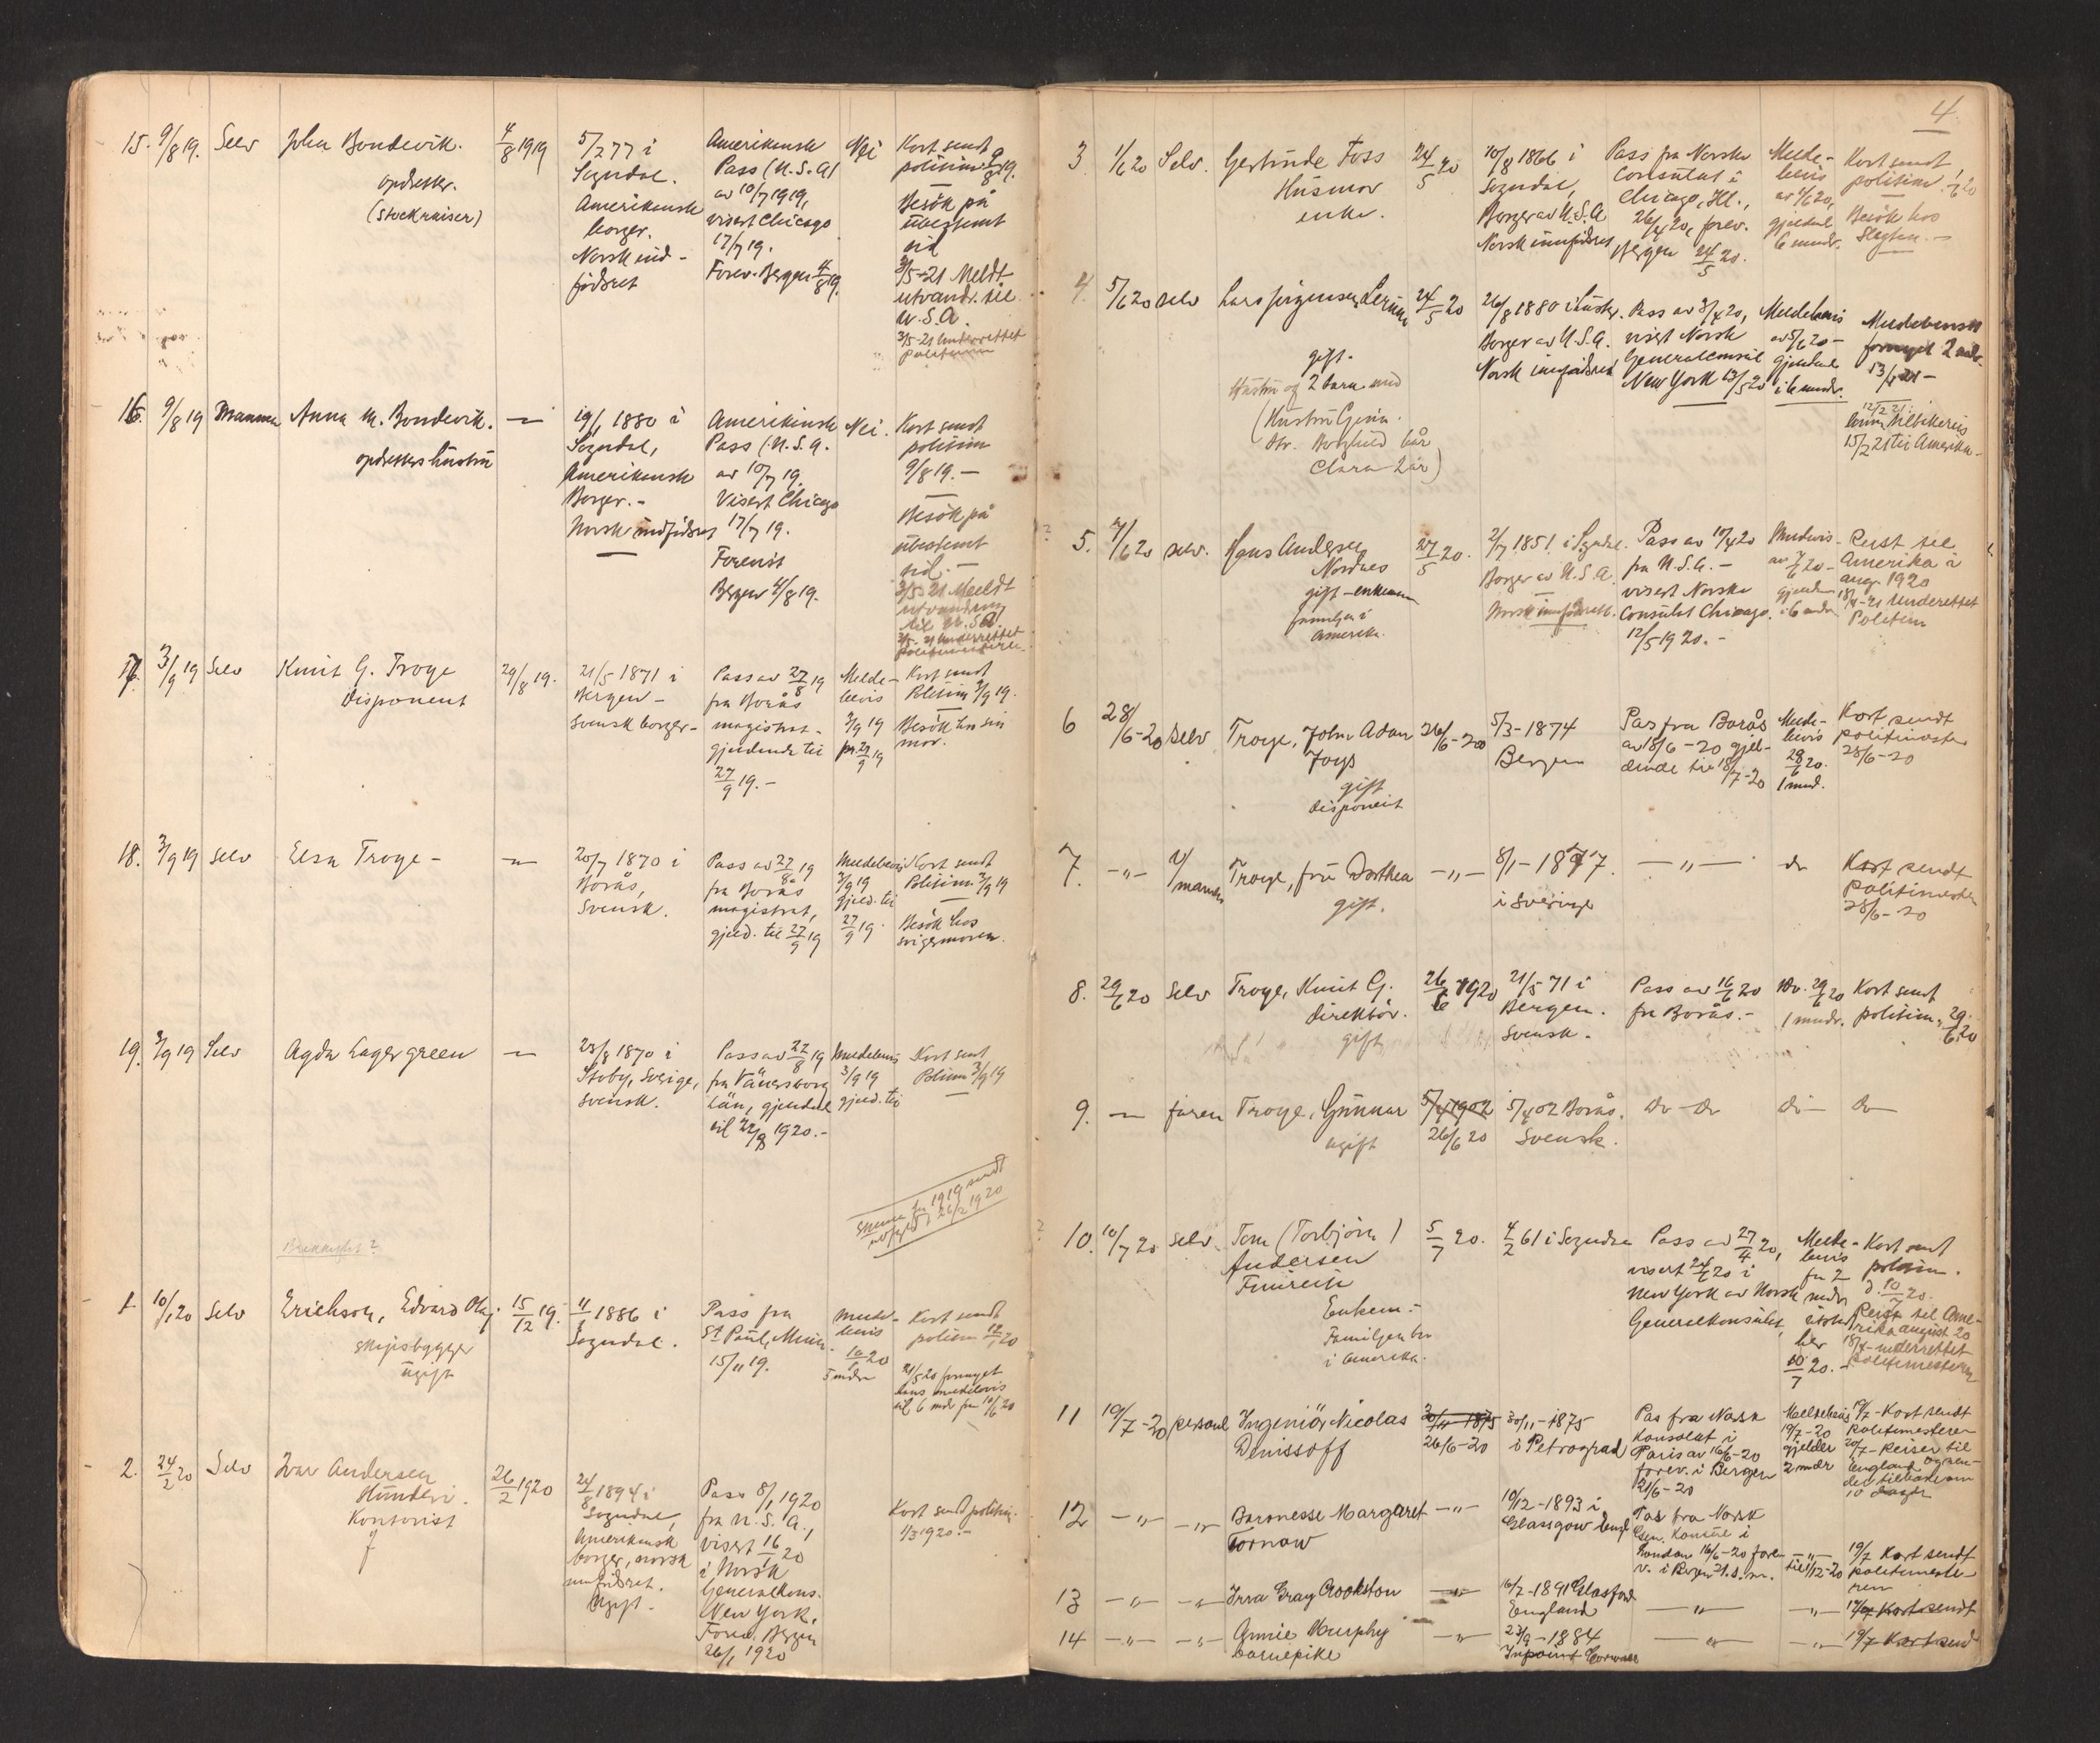 15. 9/8 19. Selv John Bondevik. 4/8 1919 5/2 77 i Amerikansk Nei Kort sendt
opdretter. Sogndal. Pass (U.S.A) politim. 9/8 19.
(Stockraiser) Amerikansk av 10/7 1919, Besök på
borger. visert Chicago ubestemt
Norsk ind- 17/7 19. tid
födsret Forev. Bergen 4/8 19. 3/5-21 Meldt
utvandr. til
U.S.A.
3/5-21 Underrettet
politim
16. 9/8 19 Mannen Anna M. Bondevik. — 19/1 1880 i Amerikansk Nei. Kort sendt
opdretters hustru Sogndal, Pass (U.S.A. politim
Amerikansk av 10/7 19. 9/8 19.—
Borger.- Visert Chicago Besök på
Norsk indfödsret 17/7 19. ubestemt
Forevist tid.—
Bergen 4/8 19. 3/5 21 Meldt
utvandring
til U.S.A.
3/5-21 Underrettet
17. 3/9 19 Selv Knut G. Troye 29/8 19. 21/5 1871 i Pass av 27/8 19 Melde- Kort sendt
Disponent Bergen- fra Borås bevis Politim 3/9 19.
Svensk borger- magistrat- 3/9 19 Besök hos sin
gjeldende til mor.
27/9 19.—
18. 3/9 19 selv Elsa Troye - — 20/7 1870 i Pass av 27/8 19 Meldebevis Kort sendt
Borås, fra Borås 3/9 19 Politim. 3/9 19
Svensk. magistrat, gjeld. til
gjeld. til 27/9 19 27/9 19. Besök hos
svigermoren.
19. 3/9 19 Selv Agda Lagergreen — 23/8 1870 i Pass av 22/8 19 Meldebevis Kort sent
Stoby, Sverige, fra Vänersborg 3/9 19 Politim 3/9 19
Svensk. Län, gjeldende gjeld. til
til 22/8 1920.-
for 1919 sendt
26/2 1920
1 10/1 20 Selv Erickson, Edvard Olaj. 15/12 19. 11/1 1886 i Pass fra Melde- Kort sendt
skipsbygger Sogndal. St Paul, Minn. bevis politim 12/1 20
ugift 15/11 19. 10/1 20
5 mdr 21/5 20 fornyet
hans meldebevis
til 6 mdr fra 10/6 20
2. 24/2 20 Selv Ivar Andersen 26/2 1920 24/8 1894 i Pass 8/1 1920 Kort sendt politim.
Hunderi. Sogndal, fra U.S.A., 1/3 1920.-
Kontorist Amerikansk visert 16/1 20
borger, norsk i Norsk
innfödsret. Generalkons.
Ugift- New York.
Forev. Bergen
26/1 1920
4
3 1/6 20 Selv. Gertrude Foss 24/5 20 10/8 1866 i Pass fra Norske Melde- Kort sendt
Husmor Sogndal, Consulat i bevis politim. 1/6 20
enke. Borger av U.S.A. Chicago, Ill., av 1/6 20, Besök hos
Norsk innfödsret 26/4 20, forev. gjeldende Slegten.—
Bergen 24/5 20. 6 mndr.
4. 5/6 20 selv Lars Jörgensen Lerum 24/5 20 26/8 1880 i Luster. Pass av 3/4 20, Meldebevis Meldebeviset
gift. Borger av U.S.A. visert Norsk av 5/6 20- fornyet 2 mdr.
Hustru og 2 barn med Norsk innfödsret Generalconsul gjeldende 13/1 21-
(Hustru New York 13/5 20 i 6 mndr.
Clara 2 år) 15/2 21 til Amerika.
5. 7/6 20 selv. Hans Andersen 27/5 20. 2/7 1851 i Sogndal. Pass av 10/4 20 Reist til
Nordnes Borger av U.S.A. fra U.S.A.- Amerika i
gift-enkemann Norsk innfödsrett. visert Norske aug. 1920
familje i Consulat Chicago 18/4-21 Underettet
Amerika. 12/5 1920.- Politim
6 28/6-20 Selv Troye, John Adan 26/6-20 5/3-1874 Pas fra Borås Melde- Kort sendt
Joys Bergen av 18/6-20 gjel- bevis politimester
gift dende til 18/7-20 28/6 20. 28/6-20
disponent 1 mnd.
7. —„— v/ mannen Troye, fru Dorthea —„— 8/1-1877. —„— do Kort sendt
gift. i Sverige politimester
28/6-20
8. 29/6 20 Selv Troye, Knut G. 26/6 1920 21/5 71 i Pass av 16/6 20 Do. 29/6 20 Kort sent
direktör. Bergen. fra Borås.- 1 mndr. politim. 29/6 20
gift Svensk.
9. — faren Troye, Gunnar 5/4 1902 5/4 02 Borås. Do - Do do — do —
ugift 26/6 20 Svensk.
10. 10/7 20 selv Tom (Torbjörn) 5/7 20. 4/2 61 i Sogndal Pass av 27/4 20, Melde- Kort sent
Andersen visert 24/6 20 i bevis politim.
New York av Norsk for 2 d. 10/7 20.
Enkem.- Generalkonsulat, mndr Reist til Ame-
Familjen bor rika august 20
i Amerika. her 18/4-underrettet
10/7 20.- politimesteren
11 19/7-20 personl Ingeniör Nicolas 30/11 1875 30/11-1875 Pas fra Norsk Meldebevis 19/7-Kort sendt
Denissoff 26/6-20 i Petrograd Konsulat i 19/7-20 politimesteren
Paris av 16/6-20 gjelder 20/7-Reiser til
forev. i Bergen 2 mdr England og sen-
21/6-20 der tilbake om
10 dager
12 —„— —„— Baronesse Margaret —„— 19/12-1893 i Pas fra Norsk
Tornaw Glasgow Gen. Konsul i
London 16/6-20 —„— 19/7 Kort sendt
til 1/12-20 politimeste-
ren
13 —„— —„— Irra Gray Crookston —„— 16/7-1891 —„— —„— 19/7 Kort sendt
England
14 —„— —„— Annie Murphy —„— 23/9-1884 —„— —„— 19/7 Kort send
barnepike